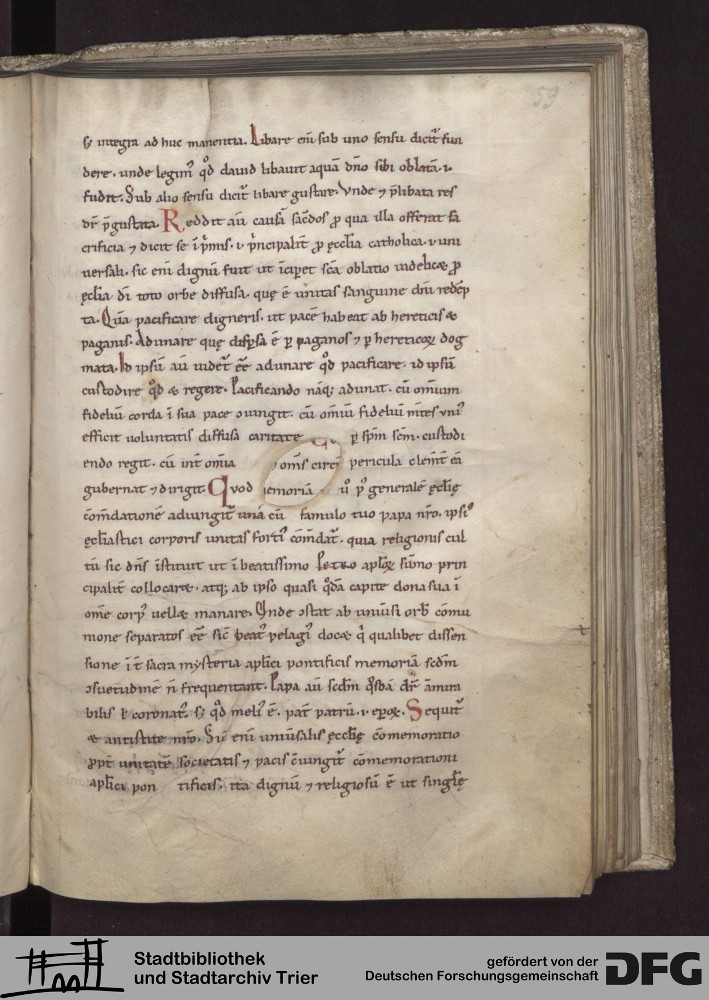 59
sʒ integra ad huc manentia. Libare eni̅ sub uno sensu dicit᷑ fun
dere. unde legim᷒ qđ dauid libauit aquā dn̅o sibi oblatā. ı.
fudit. Sub alio sensu dicit᷑ libare gustare. Vnde ⁊ p̄libata res
dr̄ p̄gustata. Reddit au̅ causā sac̅dos ꝓ qua illa offerat sa
crificia ⁊ dicit se i̅ p̄mis. ı. p̄ncipalit̅ ꝓ ęccl̅ia catholica. ı. uni
uersali. sic eni̅ dignū fuit ut i̅cip̅et sc̅a oblatio uidelicet ꝓ
ęcl̅ia di̅ toto orbe diffusa. quę ē unitas sanguine dn̅i redēp
ta. Quā pacificare digneris. ut pacē habeat ab hereticis &
paganis. Adunare quę disp̅sa ē ꝑ paganos ⁊ ꝑ hereticoꝝ dog
mata. Id ipsū au̅ uidet᷑ ēē adunare qđ pacificare. id ipsū
custodire qđ & regere. Pacificando nāqꝫ adunat. cū om̅ium
fideliū corda i̅ sua pace ɔiungit. cū om̅iū fideliū m̅tes uni᷒
efficit uoluntatis diffusa caritate ꝑ sp̅m sc̅m. custodi
endo regit. cū int̅ om̅ia ⁊ om̅s circ̅ pericula clem̅t̅ eā
gubernat ⁊ dirigit. Quod emoriā ū p̄ generalē ęcl̅ię
cōm̅datione adiungit᷑ unā cū famulo tuo papa nr̅o. ipsi᷒
ęcl̅iastici corporis unitas forti᷒ cōm̅dat᷑. quia religionis cul
tū sic dn̅s i̅stituit ut i̅ beatissimo Petro apl̅oꝝ sūmo prin
cipalit̅ collocaret. atqꝫ ab ipso quasi q̊dā capite dona sua i̅
om̅e corp᷒ uellet manare. Vnde ɔstat ab uniu̅si orb̅ cōmu
nione separatos ēē sic̅ beat᷒ pelagi᷒ docet q̇ qualibet dissen
sione i̅t̅ sacra mysteria apl̅ici pontificis memoriā sc̅dm̅
ɔsuetudinē n̄ frequentant. Papa au̅ sc̅dm̅ q̊sdā dr̄ āmira
bilis ł coronat᷒. sʒ qđ meli᷒ ē. pat̅ patrū. ı. ep̅oꝝ. Sequit᷑
& antistite nr̅o. Sic̅ eni̅ uniu̅salis ęccl̅ię cōmemoratio
ꝓpt̅ unitatē societatis ⁊ pacis c̅iungit᷑ cōmemorationi
apl̅ici pon tificis. ita dignū ⁊ religiosū ē ut singl̅ę
Stadtbibliothek
und Stadtarchiv Trier
gefördert von der
Deutschen Forschungsgemeinschaft
DFG